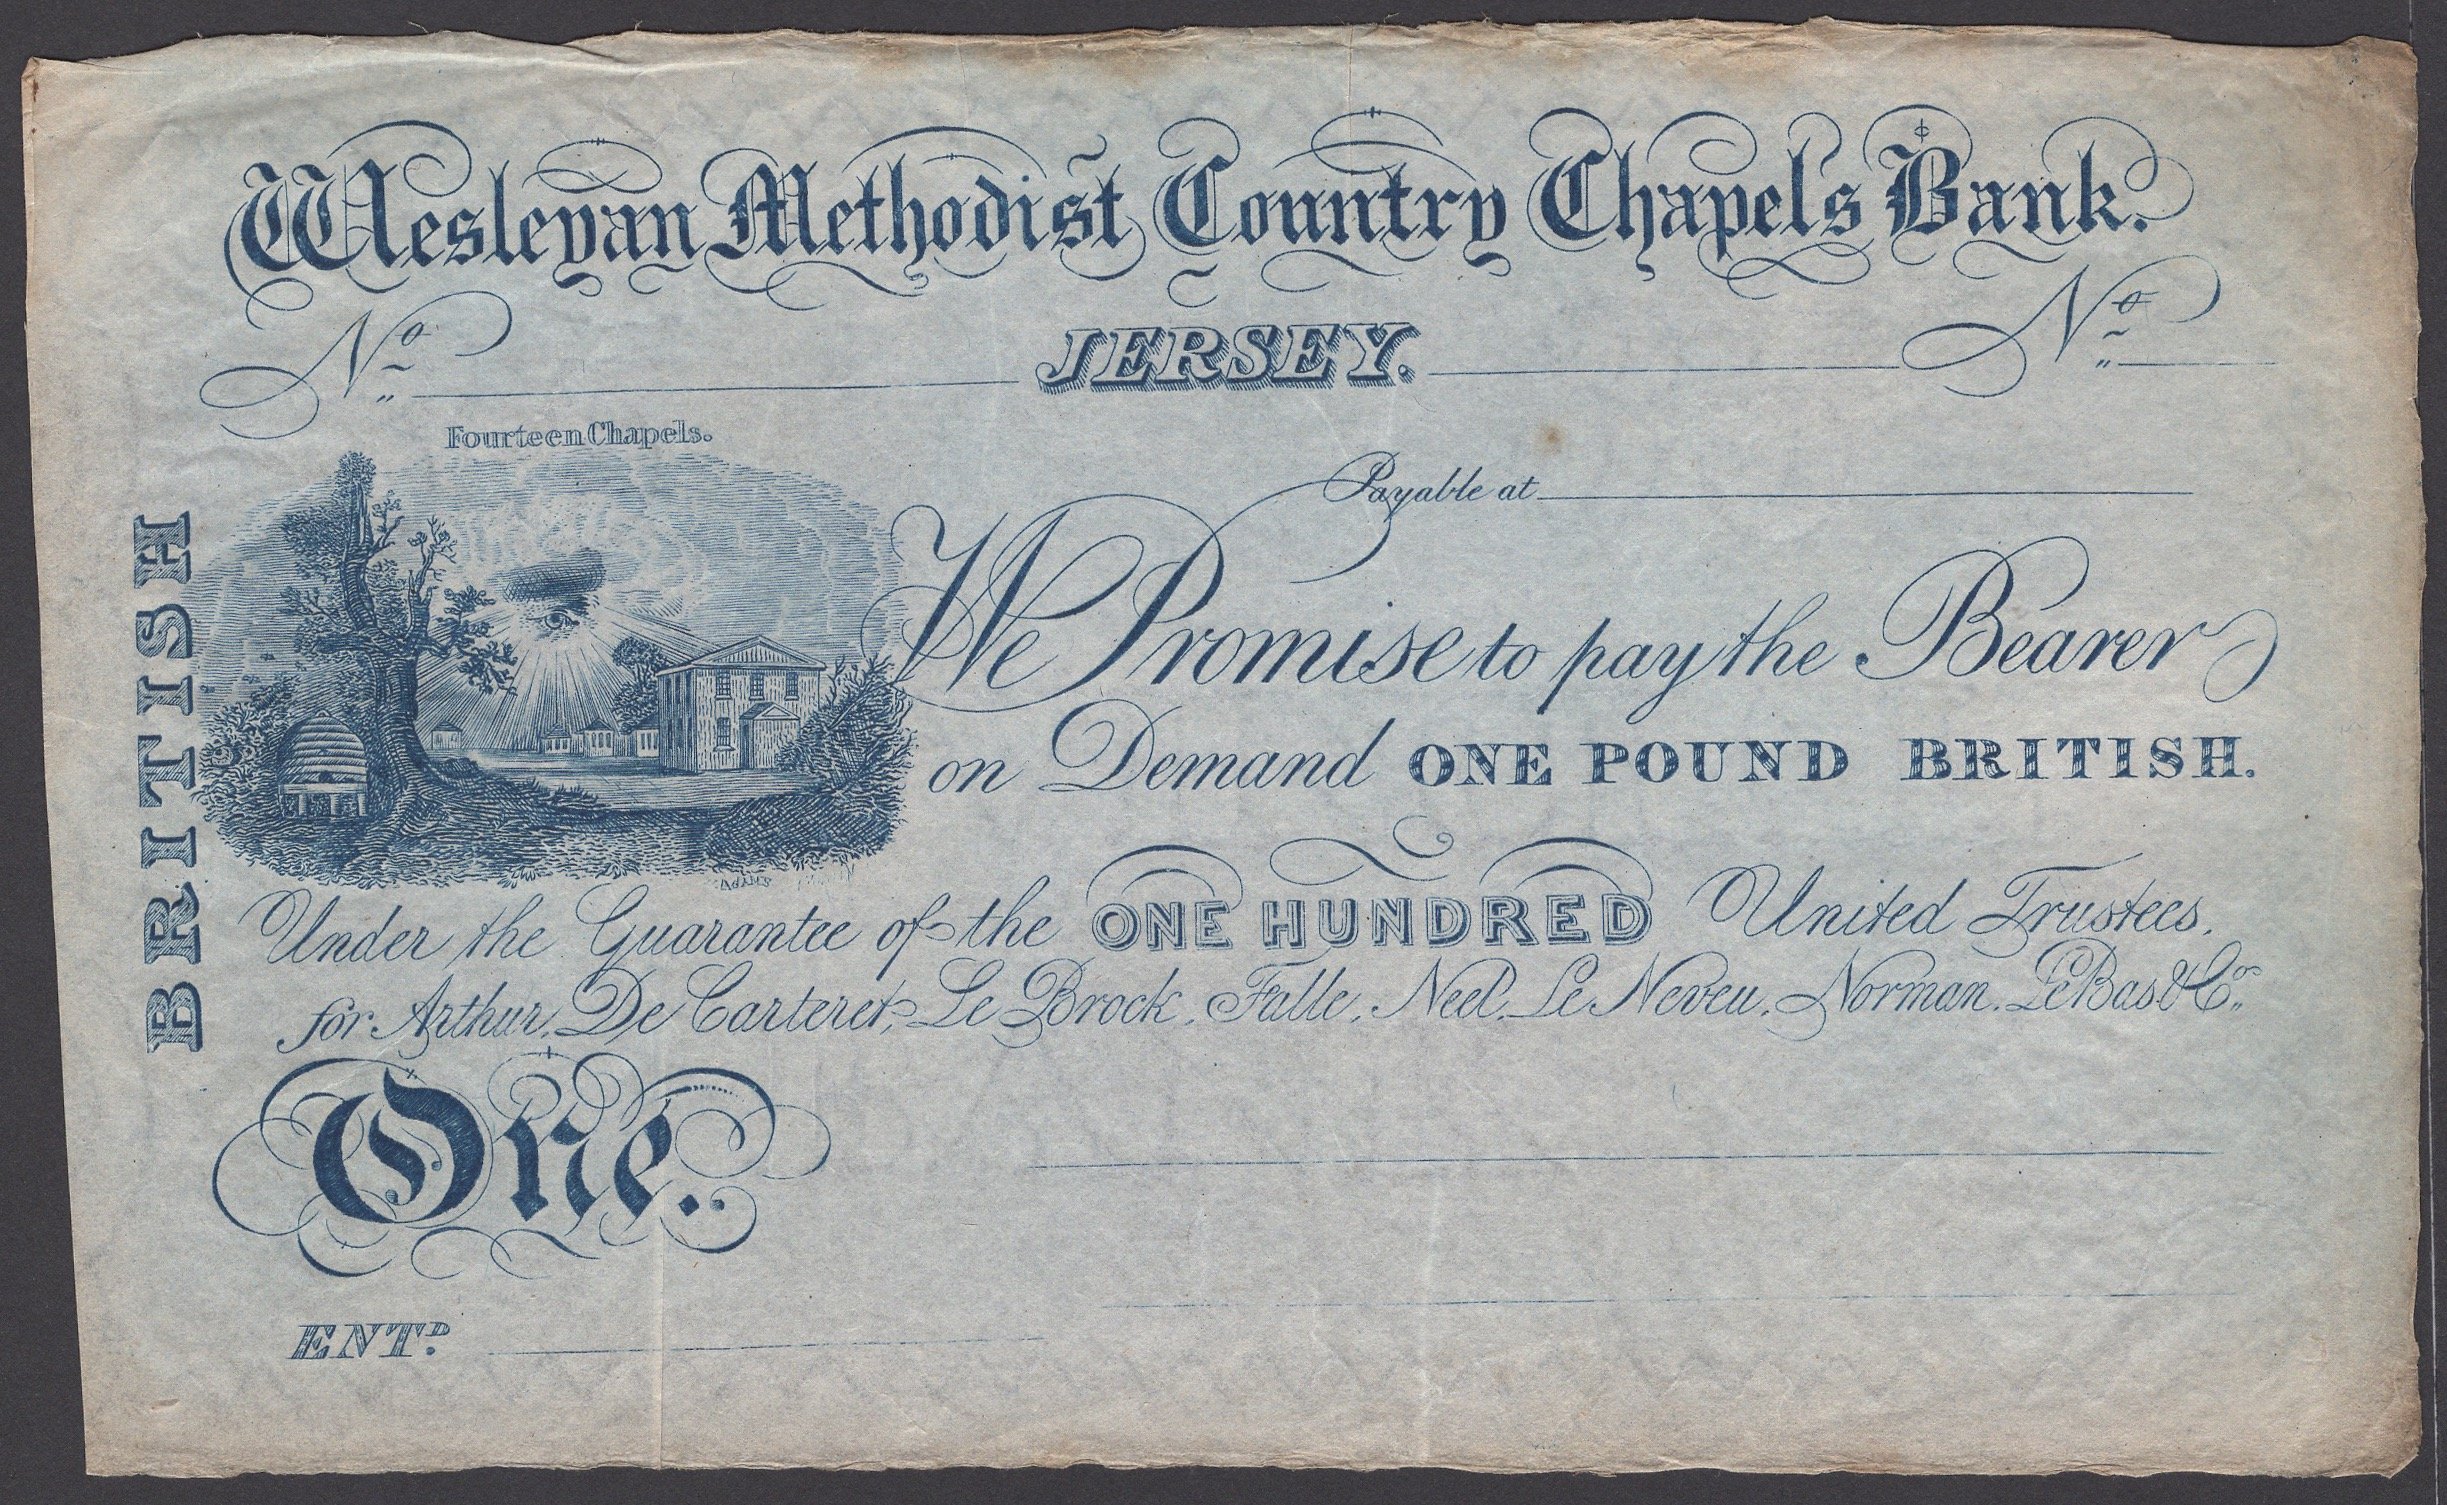 Wesleyan Methodist Country Chapels Bank.
No JERSEY. No
Fourteen Chapels.
Payable at
BRITISH
We Promise to pay the Bearer
on Demand ONE POUND BRITISH.
ADAMS
Under the Guarantee of the ONE HUNDRED United Trustees.
for Arthur, De Carteret, Le Brock, Falle, Neel, Le Neveu, Norman, Le Bas & Co.
One.
ENTD.